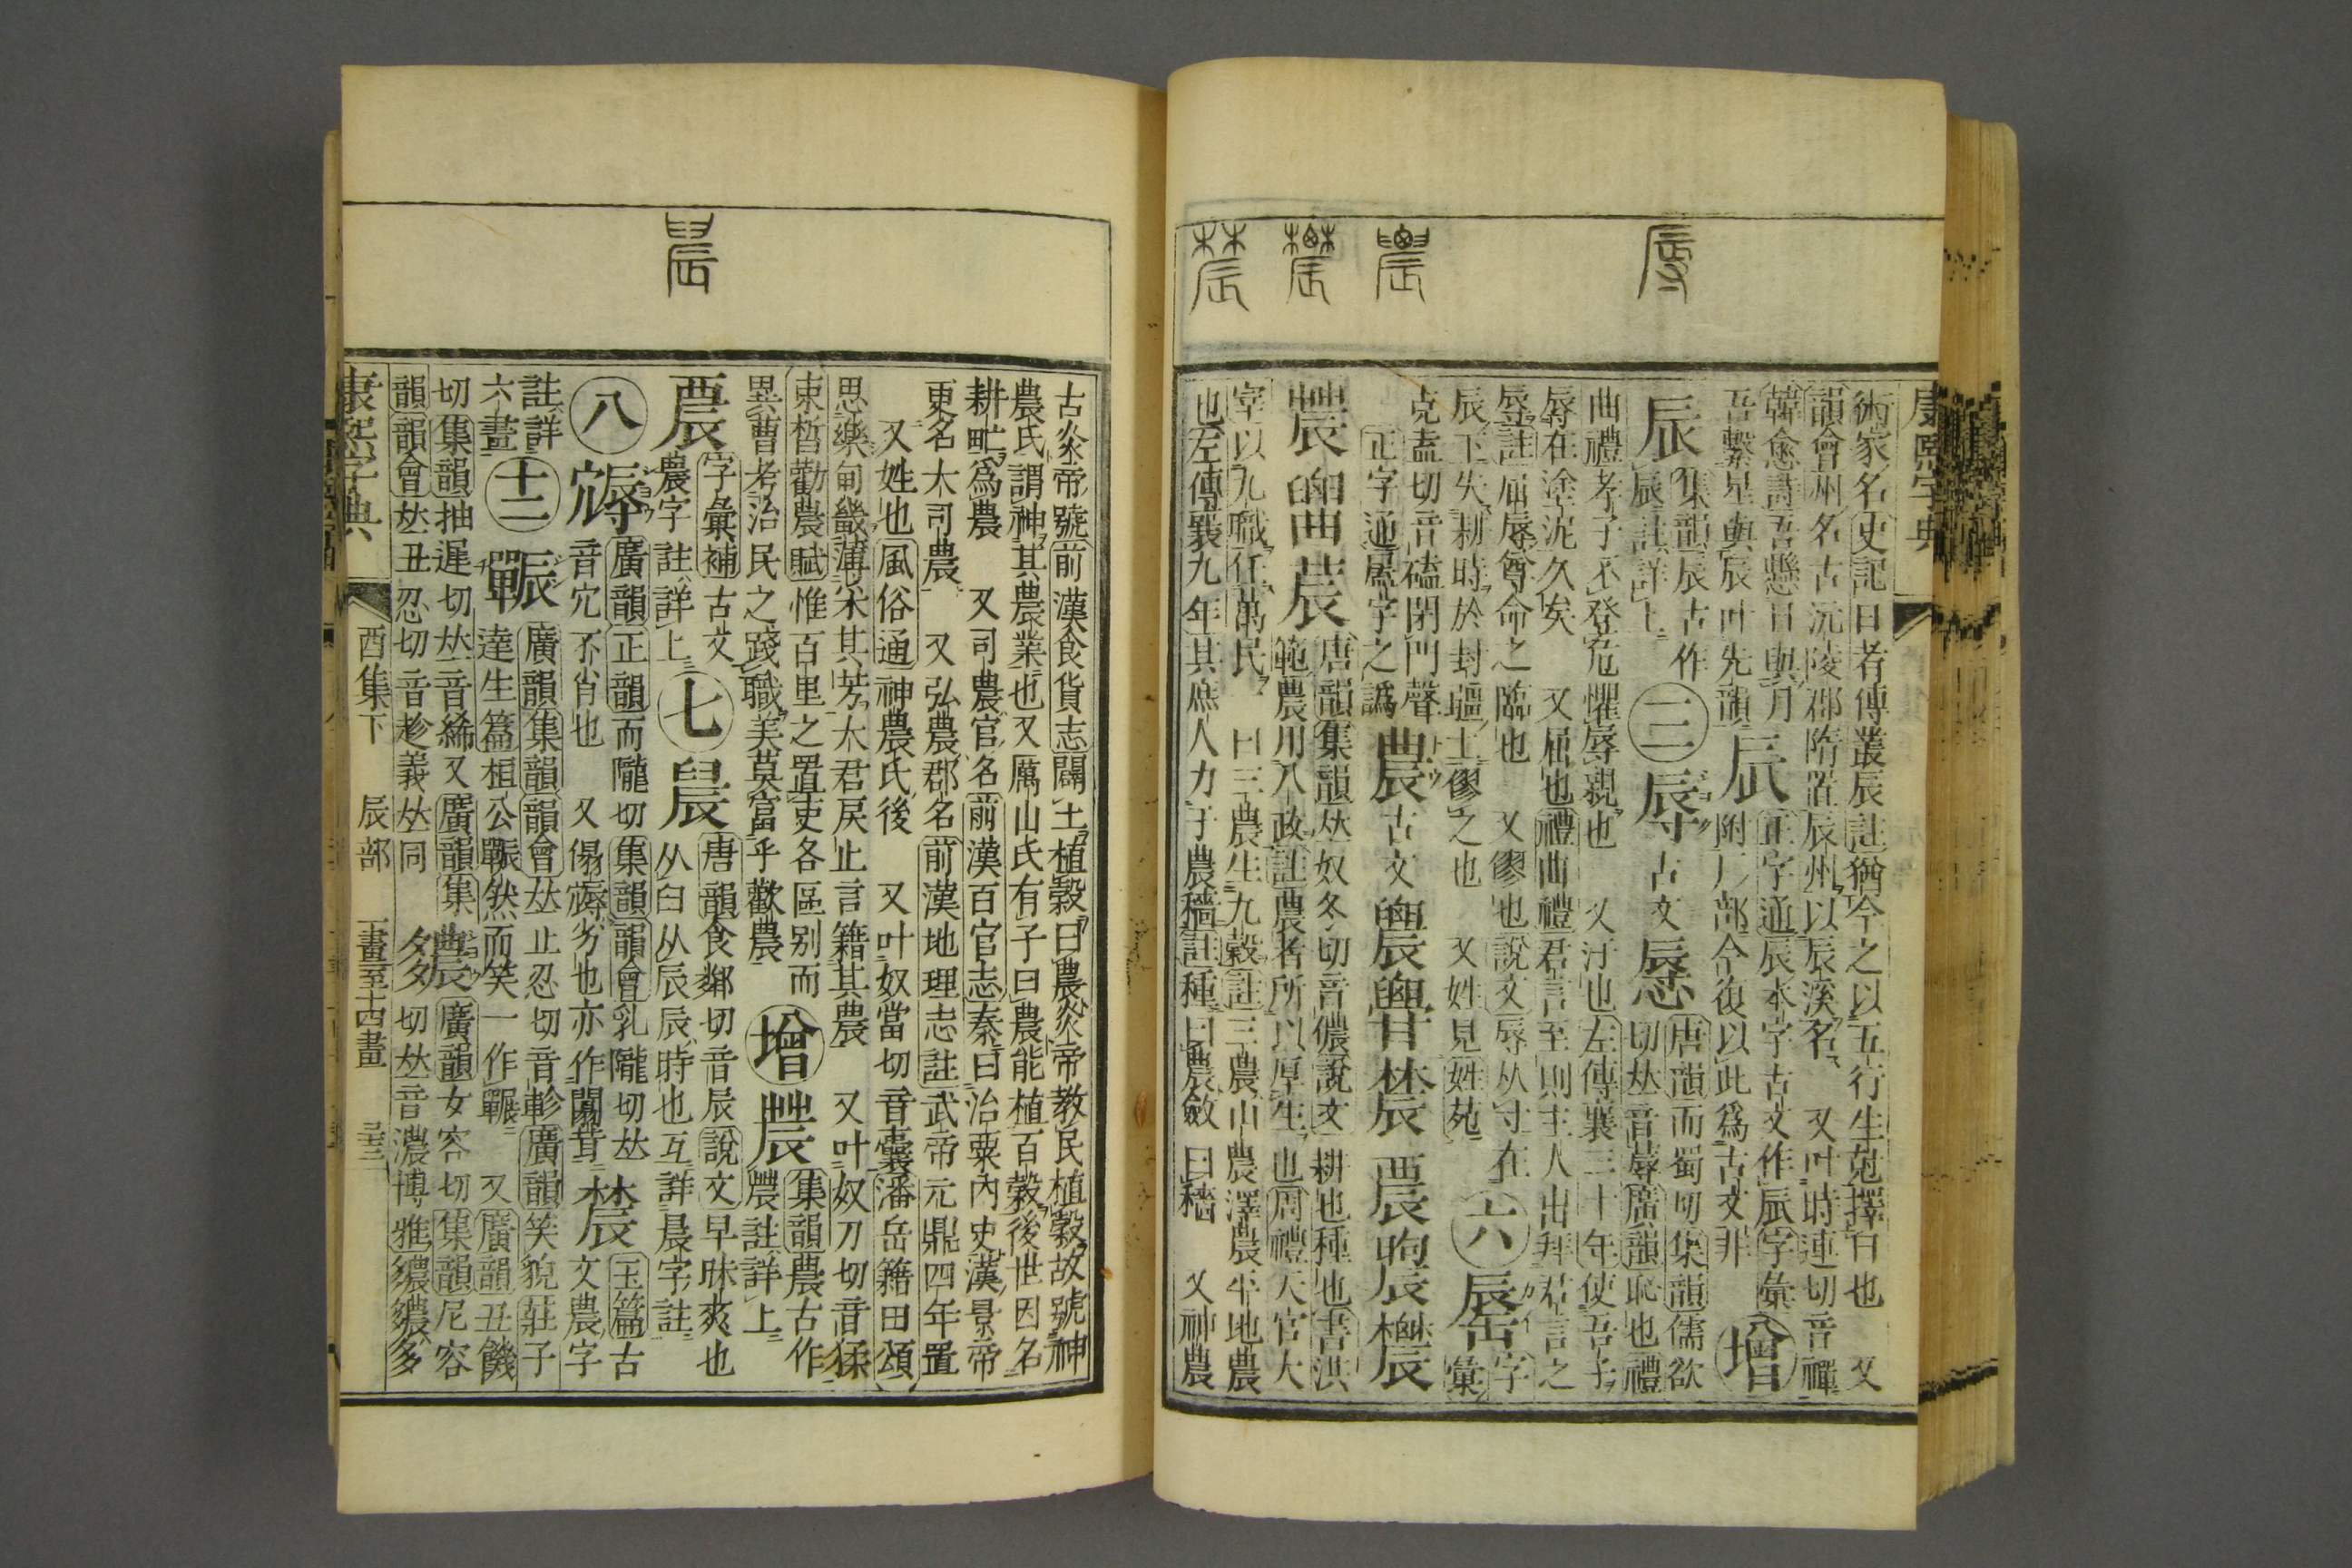 康熙字典
術家名史記日者傳叢辰註猶今之以五行生剋擇日也 又
韻會州名古沅陵郡隋置辰州以辰溪名 又叶時連切音禪
韓愈詩吾懸日與月
吾繫星與辰叶先韻
辰
正字通辰本字古文作𠨷字彙
附厂部今復以此爲古文非
增
𠨷
集韻辰古作
𠨷註詳上
三
辱
古文
𢛢
唐韻而蜀切集韻儒欲
切𠀤音蓐廣韻恥也禮
曲禮孝子不登危懼辱親也 又汙也左傳襄三十年使吾子
辱在塗泥久矣 又屈也禮曲禮君言至則主人出拜君言之
辱註屈辱尊命之臨也 又僇也說文辱从寸在
辰下失耕時於封疆上僇之也 又姓見姓苑
六
字
彙
克盍切音磕閉門聲
正字通㕎字之譌
農
古文
唐韻集韻𠀤奴冬切音儂說文耕也種也書洪
範農用八政註農者所以厚生也周禮天官大
宰以九職任萬民 曰三農生九穀註三農山農澤農平地農
也左傳襄九年其庶人力于農穡註種曰農斂曰穡 又神農
古炎帝號前漢食貨志闢土植穀曰農炎帝教民植穀故號神
農氏謂神其農業也又厲山氏有子曰農能植百穀後世因名
耕甿爲農 又司農官名前漢百官志秦曰治粟內史漢景帝
更名大司農 又弘農郡名前漢地理志註武帝元鼎四年置
又姓也風俗通神農氏後 又叶奴當切音囊潘岳籍田頌
思樂甸畿薄采其芳大君戾止言籍其農 又叶奴刀切音猱
束晳勸農賦惟百里之置吏各區別而
異曹考治民之踐職美莫富乎勸農
增
集韻農古作
農註詳上
字彙補古文
農字註詳上
七
䢅
唐韻食鄰切音辰說文早昧爽也
从臼从辰辰時也互詳晨字註
八
廣韻正韻而隴切集韻韻會乳隴切𠀤
音宂不肖也 又傝𦗨劣也亦作闒茸
玉篇古
文農字
註詳
六畫
十二
辴
廣韻集韻韻會𠀤止忍切音軫廣韻笑貌莊子
達生篇桓公辴然而笑一作囅 又廣韻丑饑
切集韻抽遲切𠀤音絺又廣韻集
韻韻會𠀤丑忍切音趁義𠀤同
廣韻女容切集韻尼容
切𠀤音濃博雅繷繷多
多
康熙字典
酉集下 辰部 三畫至十四畫